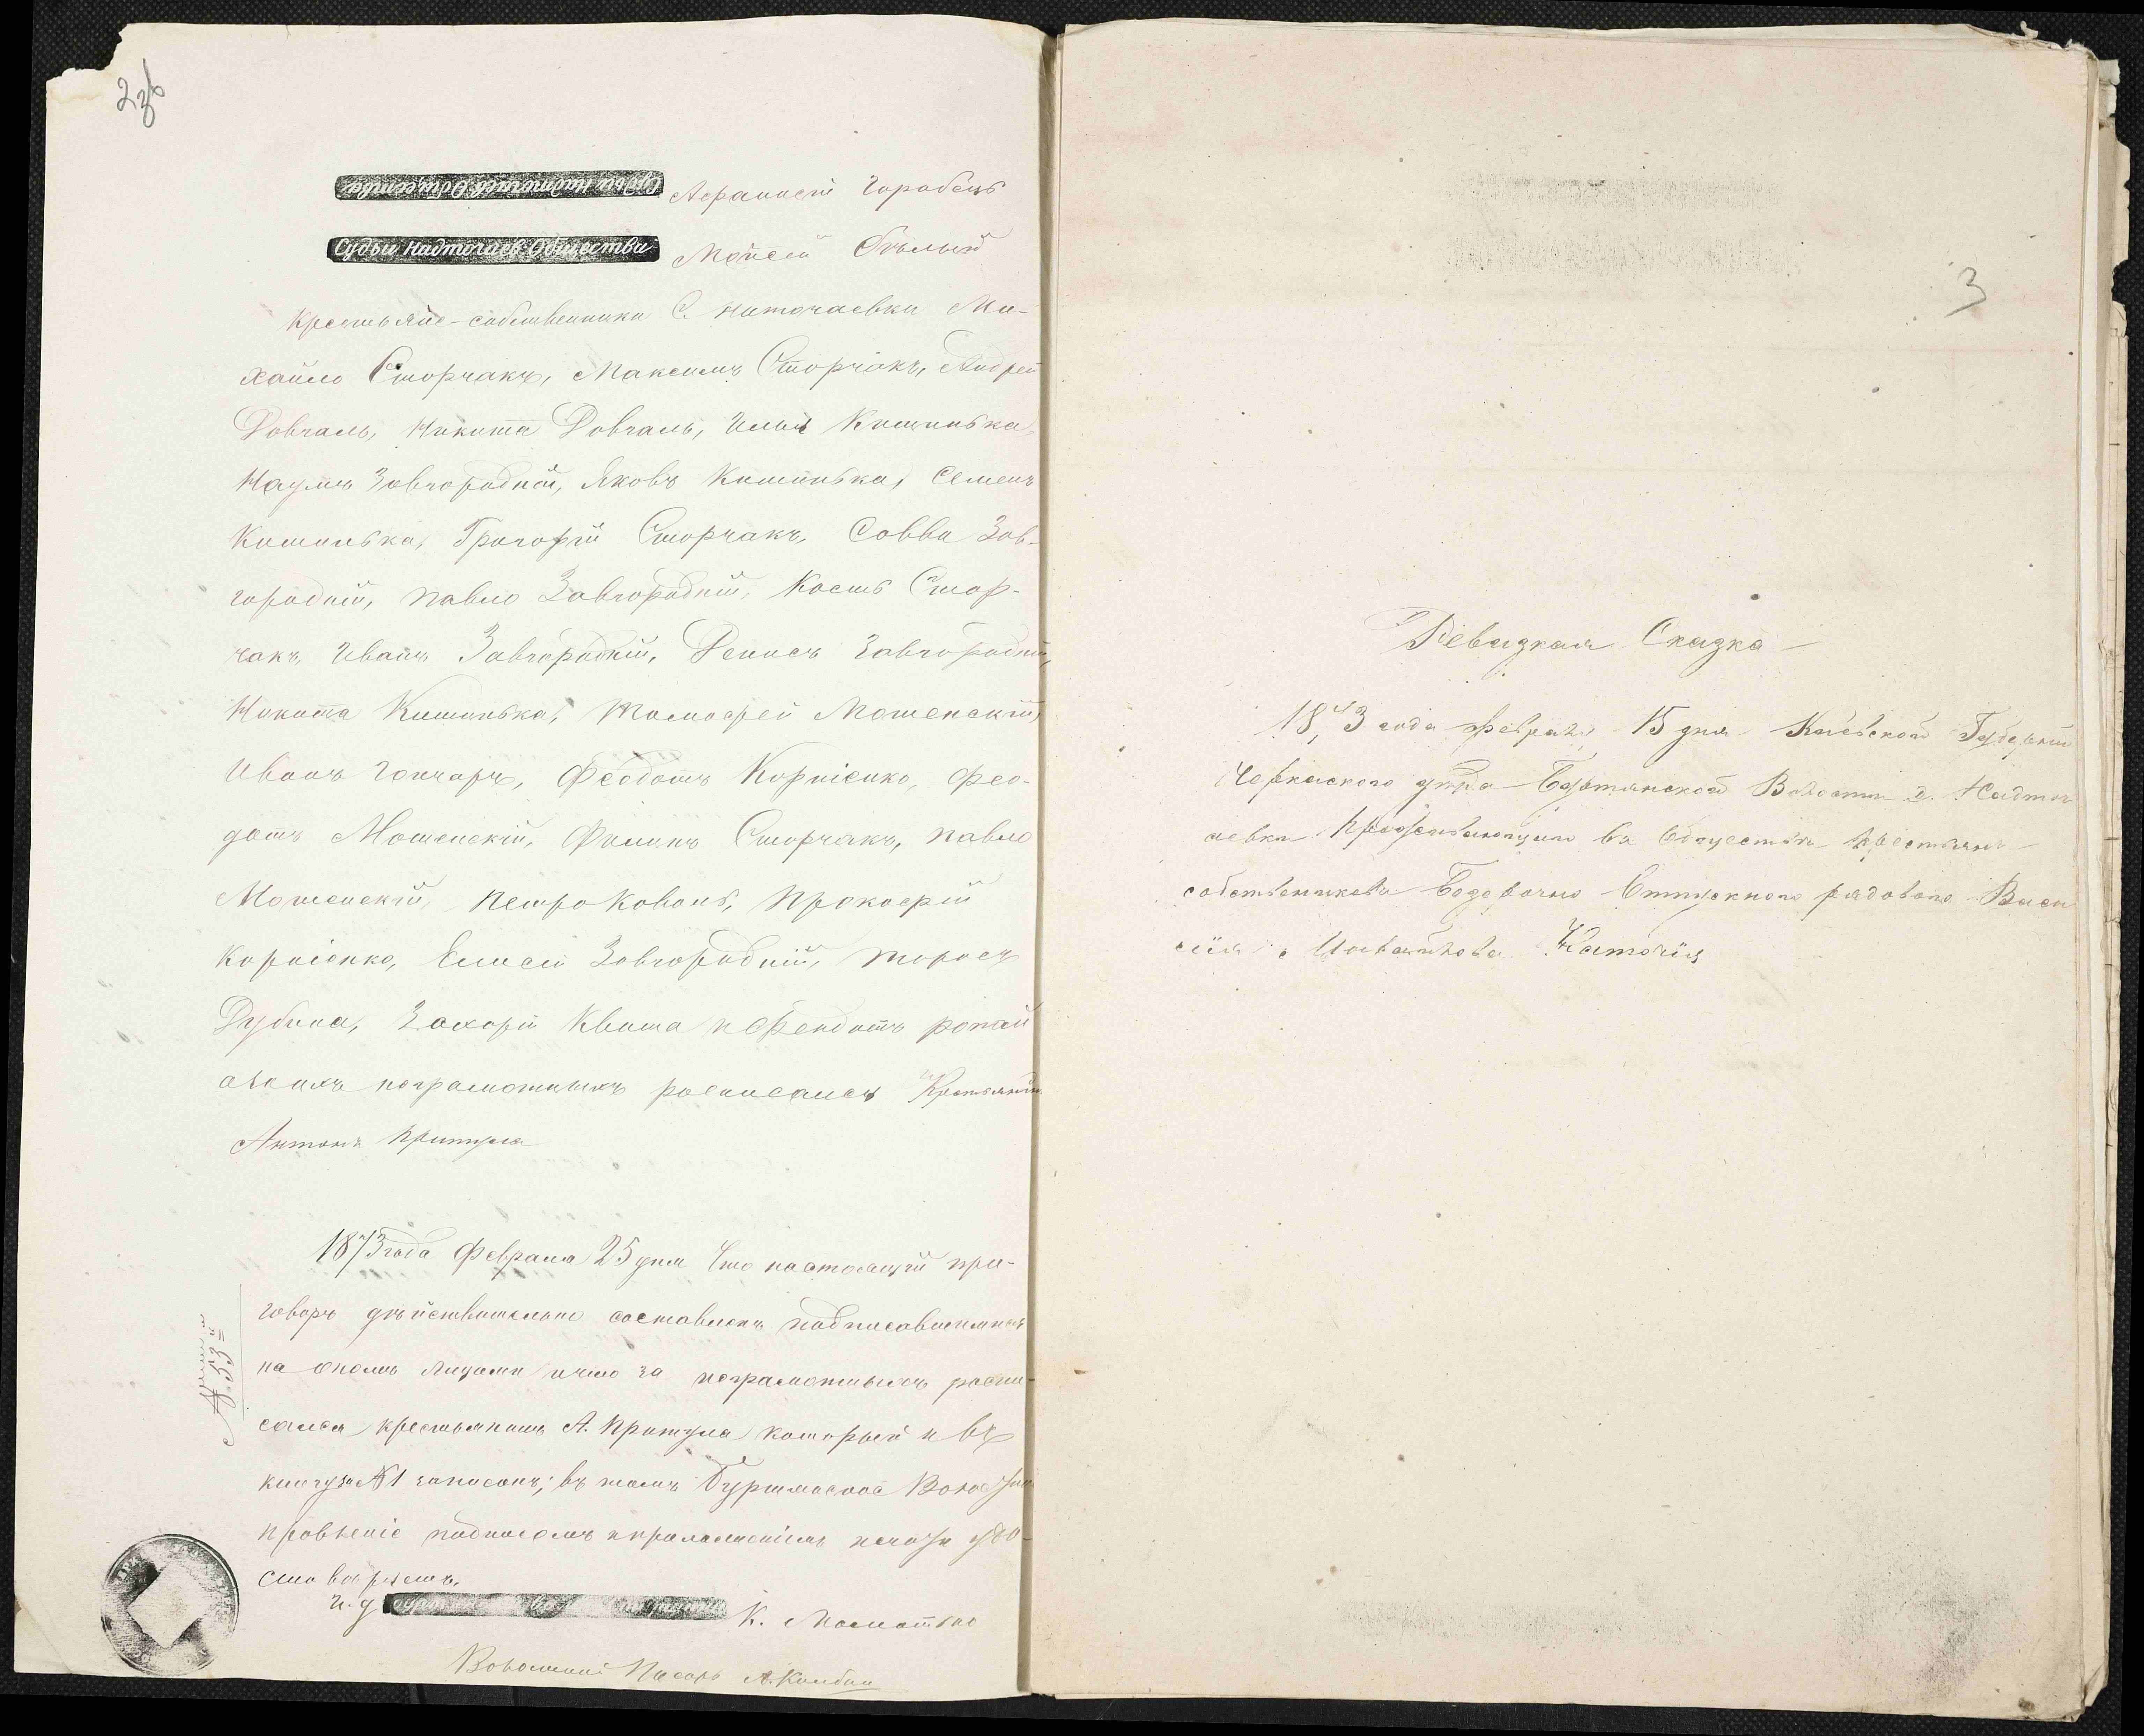 2зв
Судьи Надточаев. Общества Афанасій Горобець
Судьи Надточаев. Общества Мойсей Бѣлый
Крестьяне-собственники С. Наточаевки Ми-
хайло Сторчакъ, Максимъ Сторчакъ, Андрей
Довгаль, Никита Довгаль, Илья Кишинька
Наумъ Завгородній, Яковъ Кишинька, Семенъ
Кишинька, Григорій Сторчакъ, Савва Зав-
городній, Павло Завгородній, Кость Стор-
чакъ, Иванъ Завгородній, Денисъ Завгородній,
Никита Кишинька, Тимофей Мошенскій,
Иванъ Гончаръ, Феодотъ Корніенко, Фео-
дотъ Мошенскій, Филипъ Сторчакъ, Павло
Мошенскій, Петро Коваль, Прокофій
Корніенко, Елисей Завгородній, Тарасъ
Дубина, Захарій Кваша и Феодотъ
неграмотныхъ росписался Крестьянинъ
Антонъ Притула
1873 года Февраля 25 дня Что настоящій при-
говоръ дѣйствительно составленъ подписавшимися
на ономъ лицами и что за неграмотныхъ роспи-
сался крестьянинъ А. Притула который и въ
книгу за №1 записанъ; въ томъ Буртянское Волостное
Правленіе подписомъ и приложеніемъ печати удо-
стовѣряетъ.
И. д. К.
Волостной Писарь А.
№ 53й
3
Ревизкая Сказка
1873 года Февраля 15 дня Кіевской Губерніи
Черкаского уѣзда Буртянской Волости д. Надточ
аевки Проживающаго въ Обществѣ крестьянъ
собственниковъ Безсрочно Отпускного рядового Васи
лія Наточія